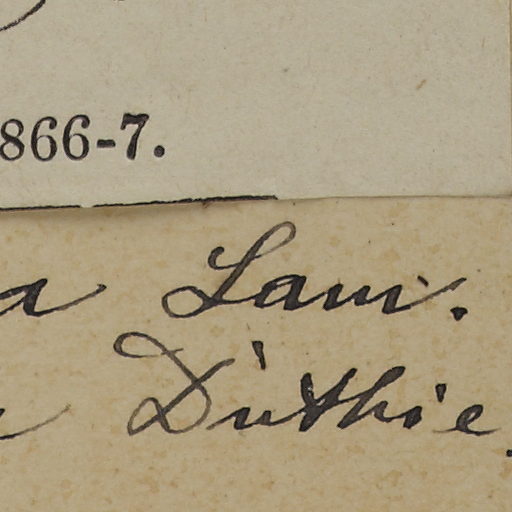 866-7.
a Lam.
Duthie.